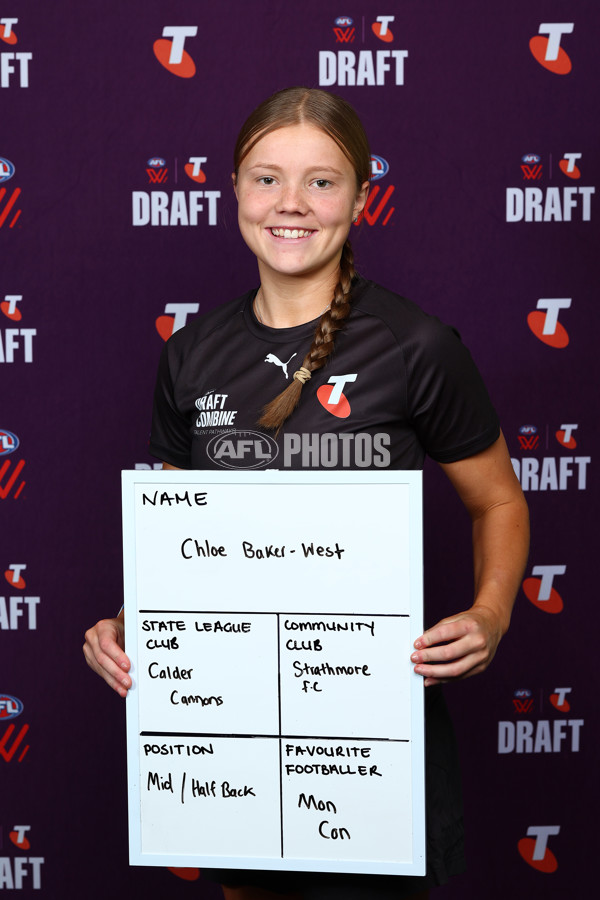 DRAFT
DRAFT
DRAFT
DRAFT
DRAFT
DRAFT
DRAFT
DRAFT COMBINE
TALENT PATHWAYS
AFL PHOTOS
NAME
Chloe Baker-West
STATE LEAGUE
CLUB
Calder
Cannons
COMMUNITY
CLUB
Strathmore
F.C
POSITION
Mid / Half Back
FAVOURITE
FOOTBALLER
Mon
Con